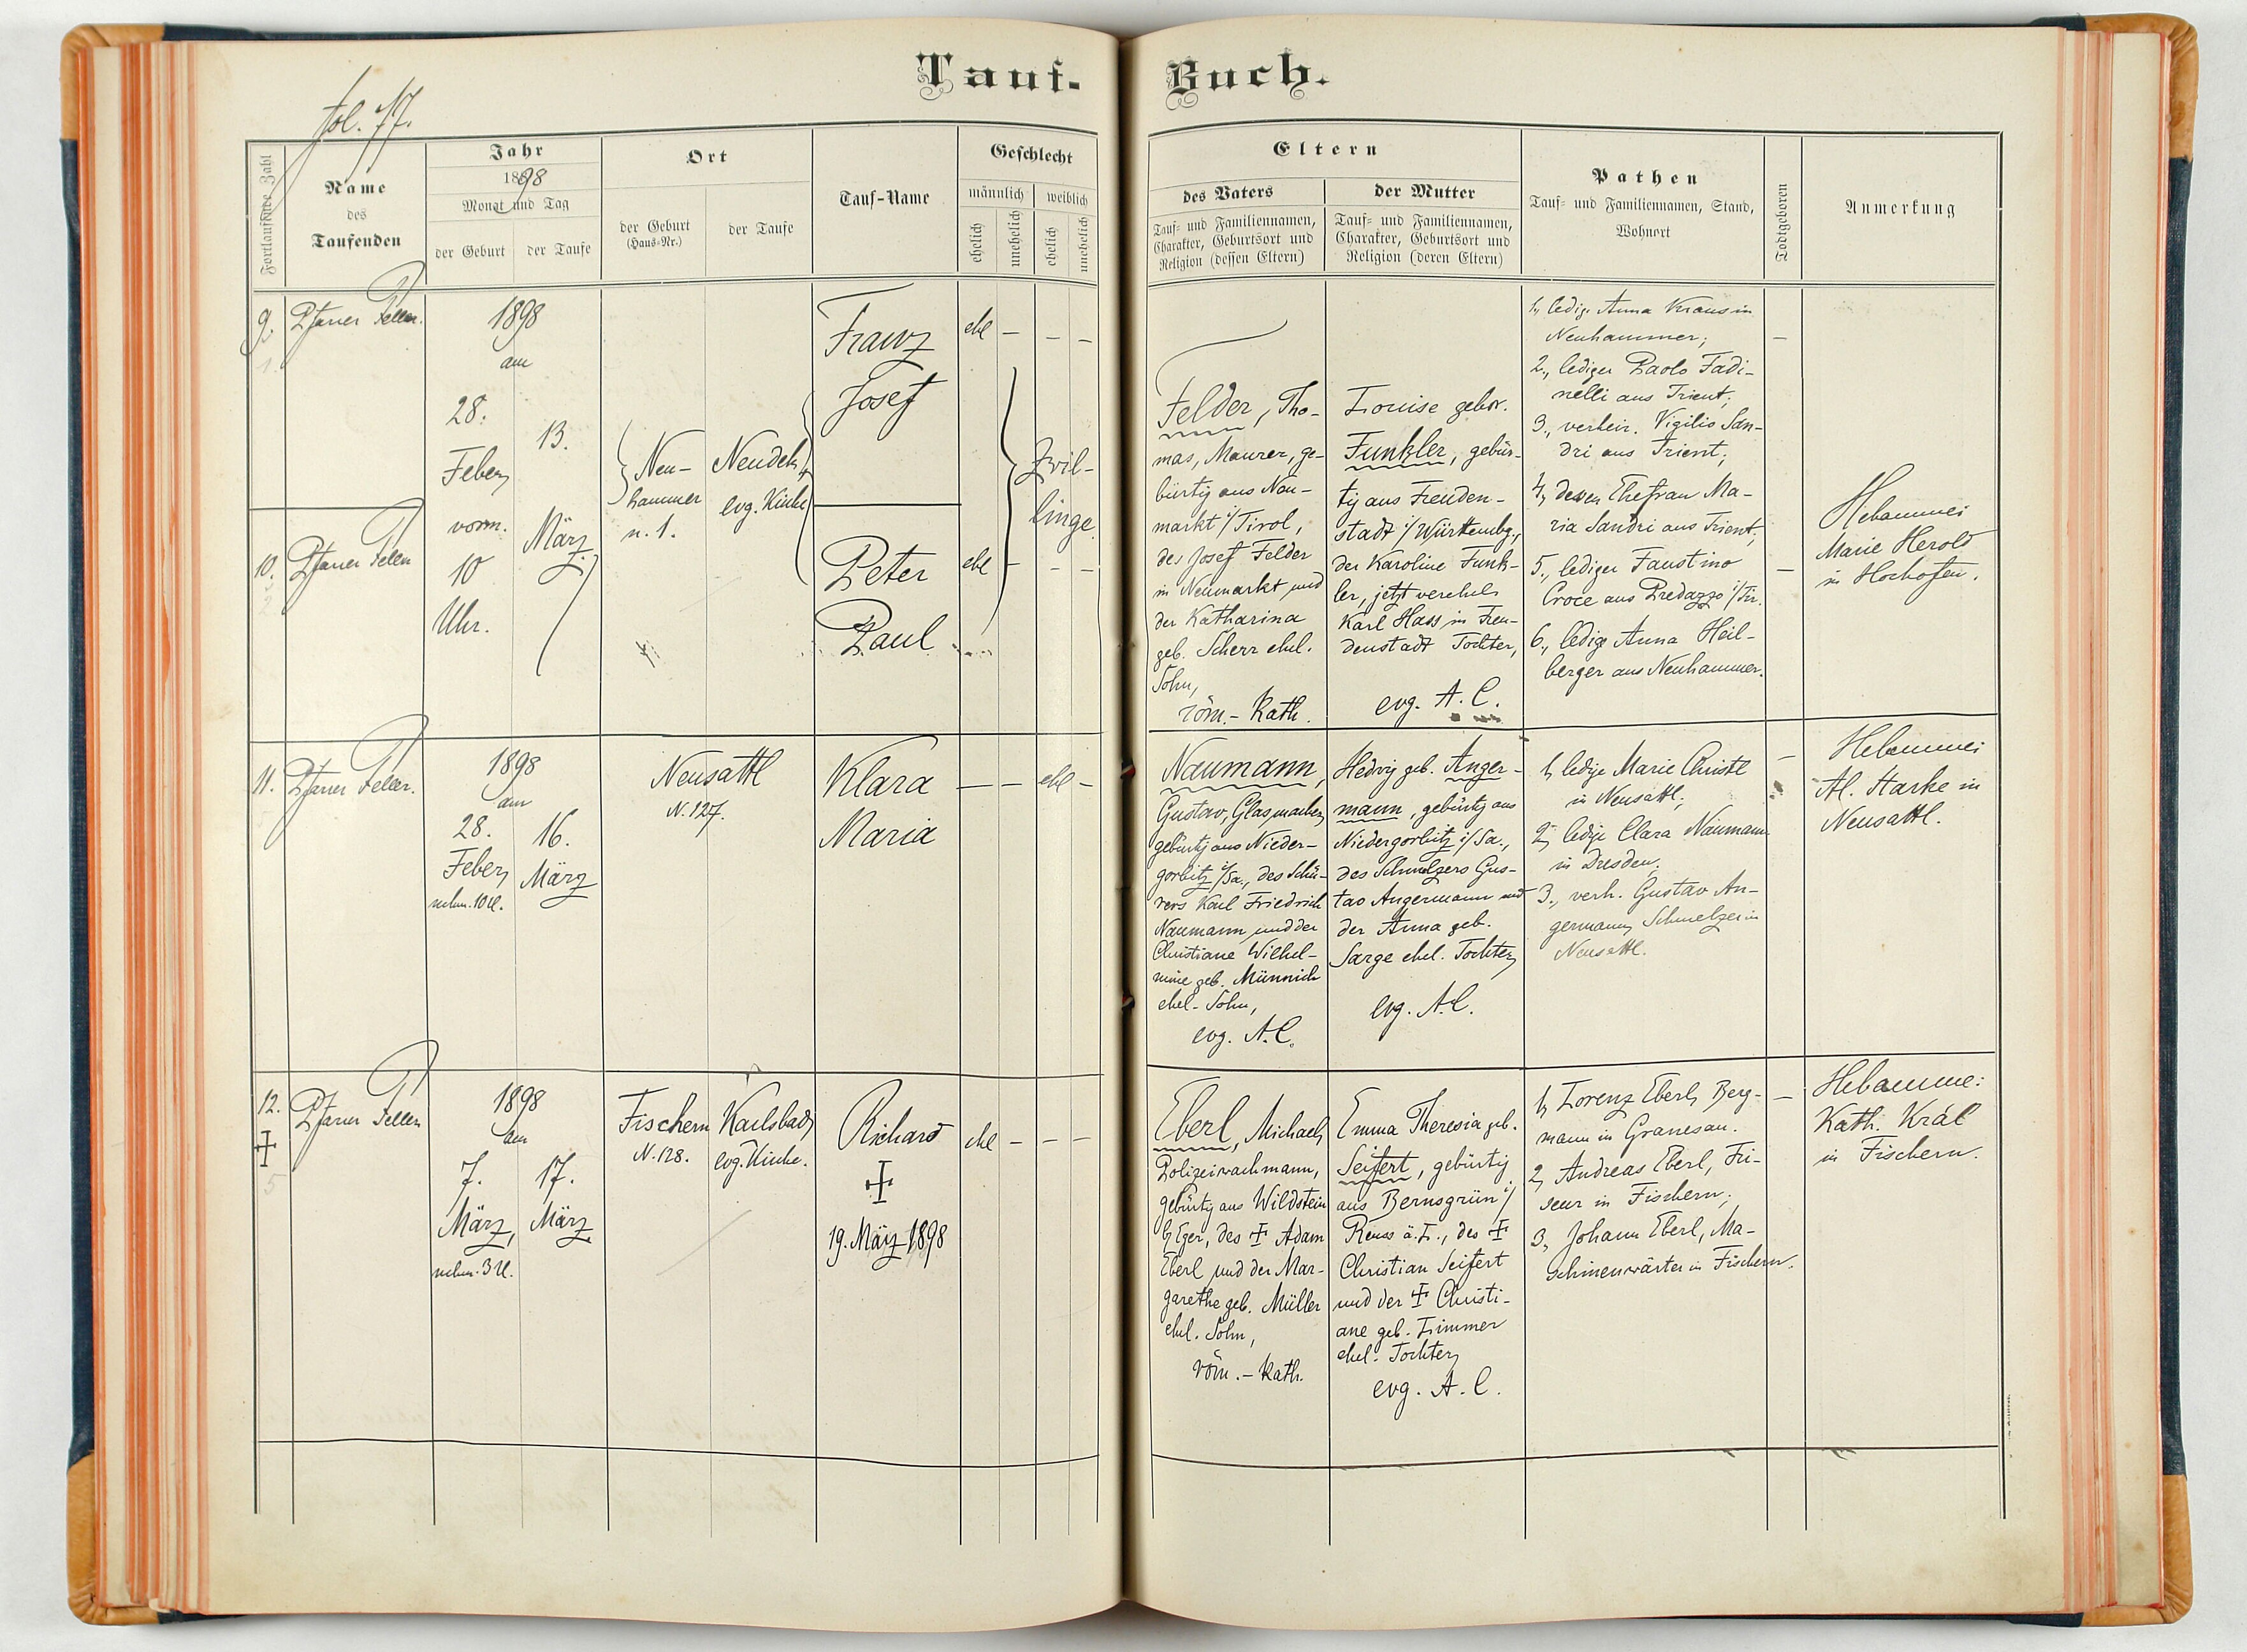 Tauf-
Buch.
fol. 77.
Fortlaufende Zahl
Name
des
Taufenden
Jahr
1898
Monat und Tag
der Geburt
der Taufe
Ort
der Geburt
(Haus-Nr.)
der Taufe
Tauf-Name
Geschlecht
männlich
weiblich
ehelich
unehelich
ehelich
unehelich
Eltern
des Vaters
Tauf- und Familiennamen,
Charakter, Geburtsort und
Religion (dessen Eltern)
der Mutter
Tauf- und Familiennamen,
Charakter, Geburtsort und
Religion (deren Eltern)
Pathen
Tauf- und Familiennamen, Stand,
Wohnort
Todtgeboren
Anmerkung
9.
Pfarrer
1898
am
28.
Feber,
vorm.
10
Uhr.
13.
März
Neu-
hammer
n. 1.
Neudek,
evg. Kirche
Franz
Josef
ehl – – –
Zwil-
linge
10.
Pfarrer
Peter
Paul
ehl – – –
Felder, Tho-
mas, Maurer, ge-
bürtig aus Neu-
markt i/Tirol,
des Josef Felder
in Neumarkt und
der Katharina
geb. Scherr ehel.
Sohn,
röm.-kath.
Louise gebor.
Funkler, gebür-
tig aus Freuden-
stadt i/Württembg.,
der Karoline Funk-
ler, jetzt verehel.
Karl Hass in Freu-
denstadt Tochter,
evg. A. C.
1, ledige Anna Kraus in
Neuhammer;
2., lediger Paolo Fadi-
nelli aus Trient;
3., verheir. Vigilio San-
dri aus Trient;
4, dessen Ehefrau Ma-
ria Sandri aus Trient;
5., lediger Faustino
Croce aus Predazzo i/Tir.
6., ledige Anna Heil-
berger aus Neuhammer.
–
–
Hebamme:
Marie Herold
in Hochofen.
11.
Pfarrer
1898
am
28.
Feber,
nchm. 10 U.
16.
März
Neusattl
N. 127.
Klara
Maria
– – ehl –
Naumann,
Gustav, Glasmacher,
gebürtig aus Nieder-
gorbitz i/Sa., des Schü-
rers Karl Friedrich
Naumann und der
Christiane Wilhel-
mine geb. Münnich
ehel. Sohn,
evg. A. C.
Hedwig geb. Anger-
mann, gebürtig aus
Niedergorbitz i/Sa.,
des Schmelzers Gus-
tav Angermann und
der Anna geb.
Sarge ehel. Tochter,
evg. A. C.
1, ledige Marie Christl
in Neusattl;
2, ledige Clara Naumann
in Dresden;
3., verh. Gustav An-
germann, Schmelzer in
Neusattl.
–
Hebamme:
Al. Starke in
Neusattl.
12.
Pfarrer
1898
am
7.
März,
nchm. 3 U.
17.
März
Fischern
N. 128.
Karlsbad,
evg. Kirche.
Richard
19. März 1898
ehl – – –
Eberl, Michael,
Polizeiwachmann,
gebürtig aus Wildstein
b/Eger, des ✝ Adam
Eberl und der Mar-
garethe geb. Müller
ehel. Sohn,
röm.-kath.
Emma Theresia geb.
Seifert, gebürtig
aus Bernsgrün i/
Reuss ä. L., des ✝
Christian Seifert
und der ✝ Christi-
ane geb. Zimmer
ehel. Tochter,
evg. A. C.
1, Lorenz Eberl, Berg-
mann in Granesau.
2, Andreas Eberl, Fri-
seur in Fischern;
3, Johann Eberl, Ma-
schinenwärter in Fischern.
–
Hebamme:
Kath. Král
in Fischern.